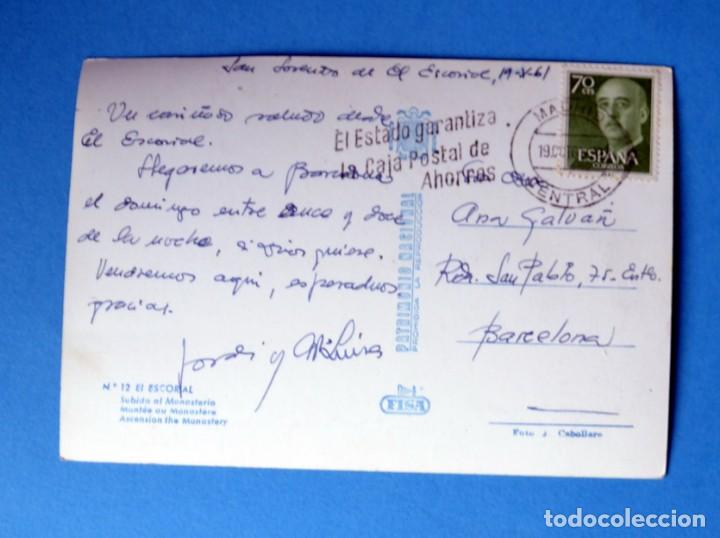 San Lorenzo de El Escorial, 19-X-61
Un cariñoso saludo desde
El Escorial.
Llegaremos a Barcelona
el domingo entre once y doce
de la noche, si Dios quiere.
Vendremos aquí, esperadnos
gracias.
Jordi y Mª Luisa
Nº 12 El ESCORIAL
Subida al Monasterio
Montée au Monastère
Ascension the Monastery
PATRIMONIO NACIONAL
PROHIBIDA LA REPRODUCCION
FISA
El Estado garantiza
la Caja Postal de
Ahorros
MADRID
19 OCT
CENTRAL
70 CTS
ESPAÑA
CORREOS
Ana Galvañ
Rda. San Pablo, 75-Entlo.
Barcelona
Foto J. Caballero
todocoleccion.net